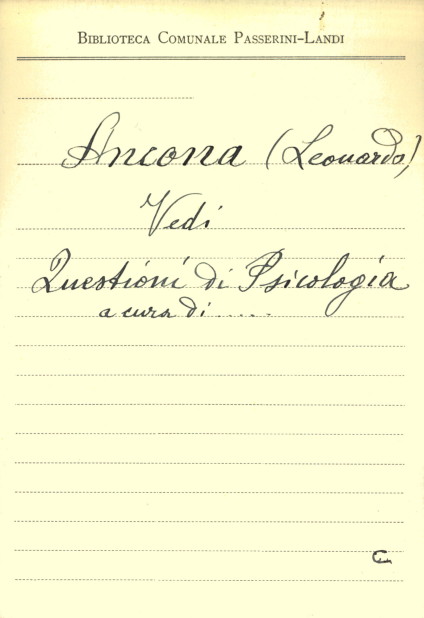 BIBLIOTECA COMUNALE PASSERINI-LANDI
Ancona (Leonardo)
Vedi
Questioni di Psicologia
a cura di .....